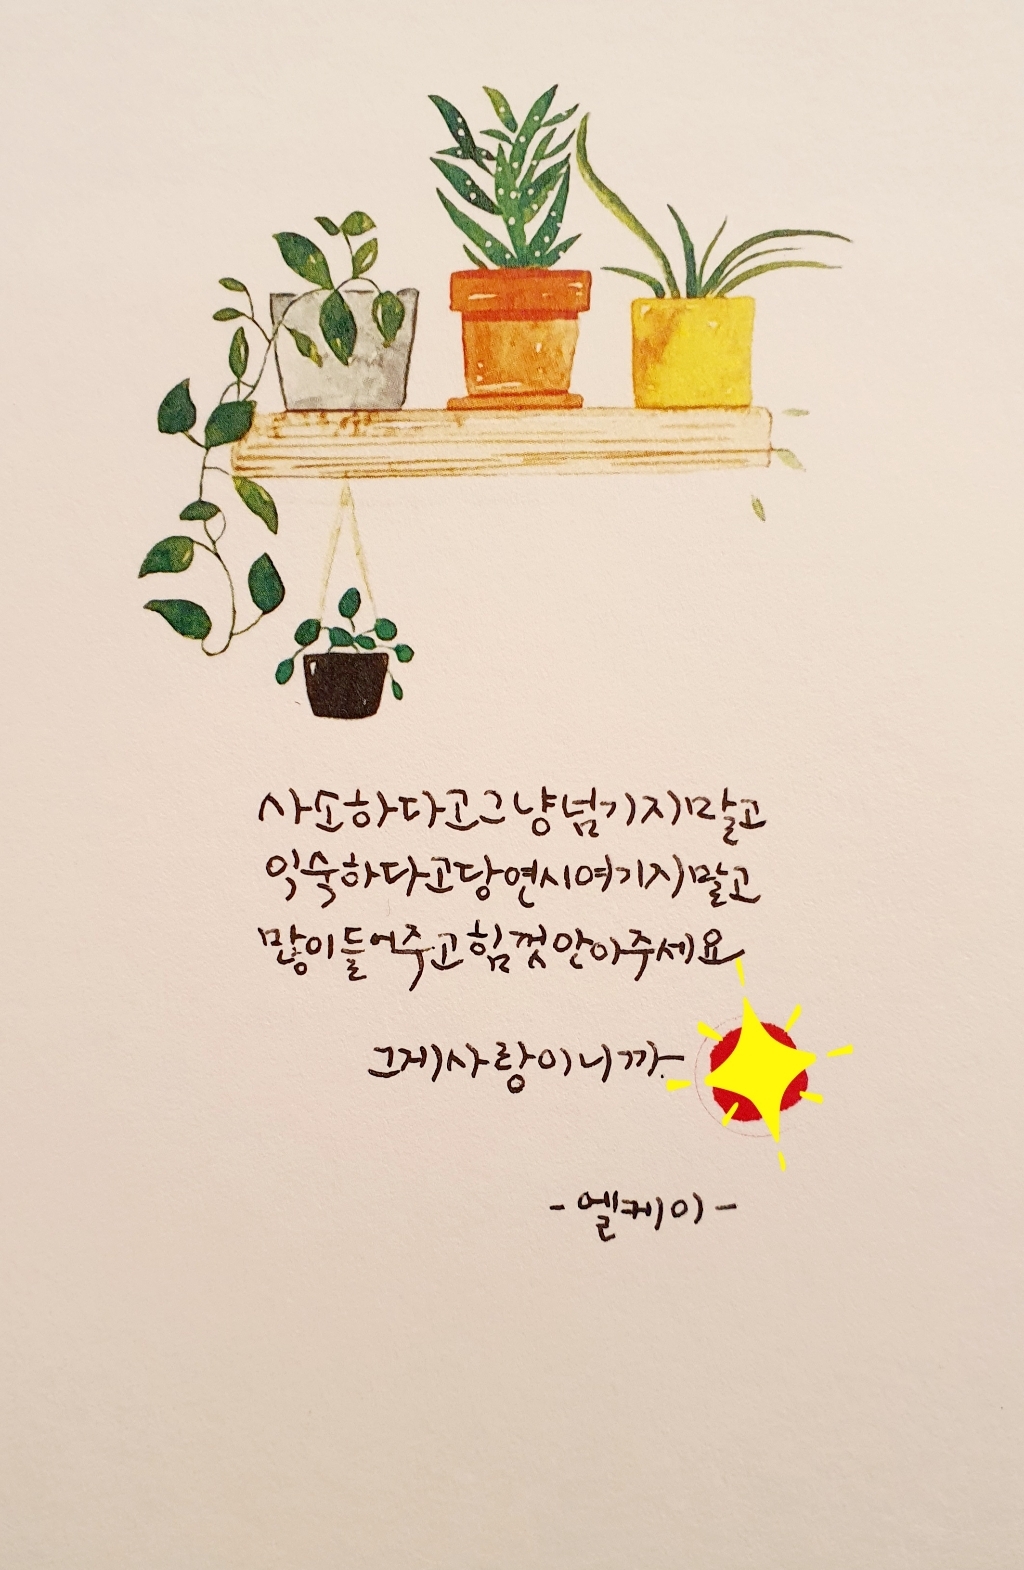 사소하다고그냥넘기지말고
익숙하다고당연시여기지말고
많이들어주고힘껏안아주세요
그게사랑이니까
-엘케이-